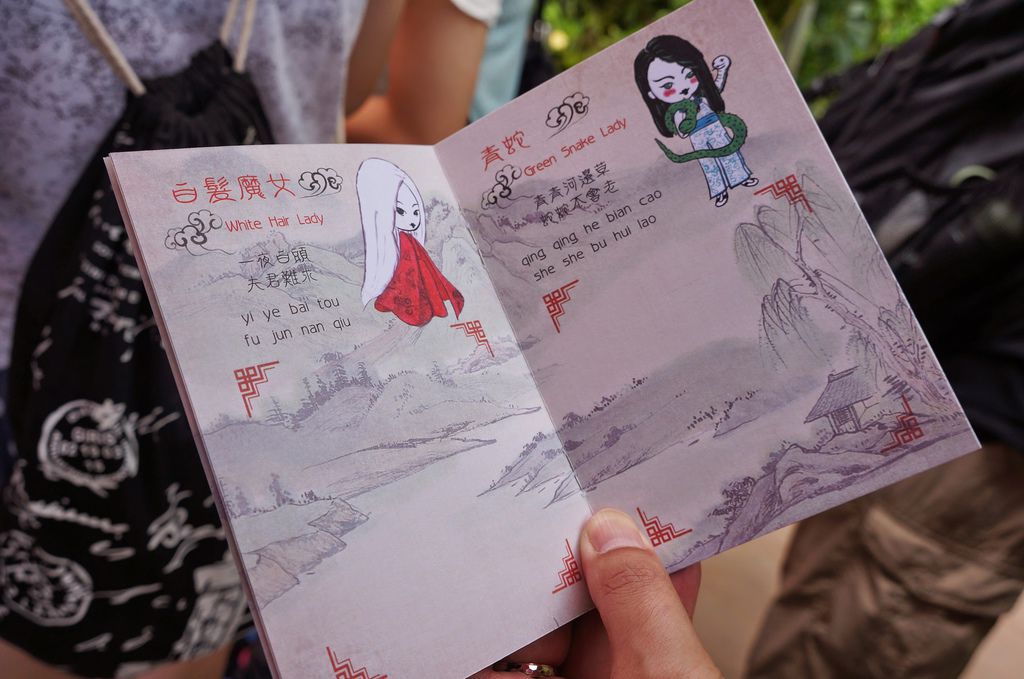 白髮魔女
White Hair Lady
一夜白頭
夫君難求
yi ye bai tou
fu jun nan qiu
青蛇
Green Snake Lady
青青河邊草
蛇蛇不會走
qing qing he bian cao
she she bu hui lao